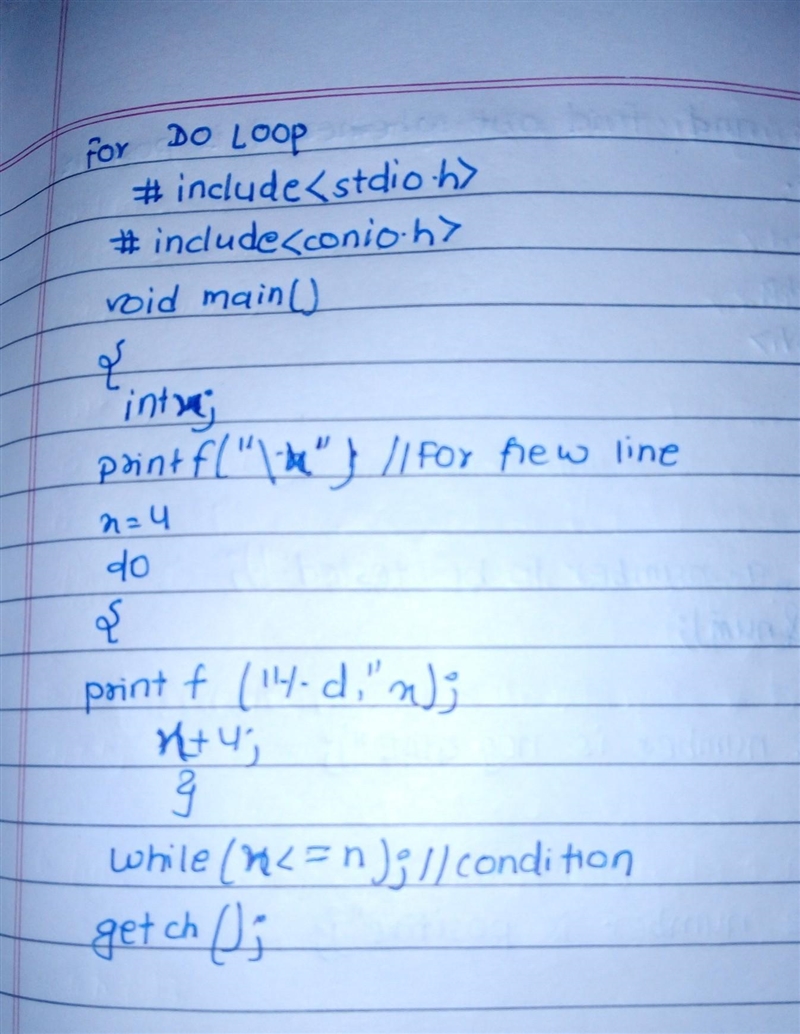 For DO LOOP
# include<stdio.h>
# include<conio.h>
void main()
{
int x;
printf("\x"} //For new line
x=4
do
{
print f ("%d,"x);
x+4;
}
while(x<=n);//condition
getch();